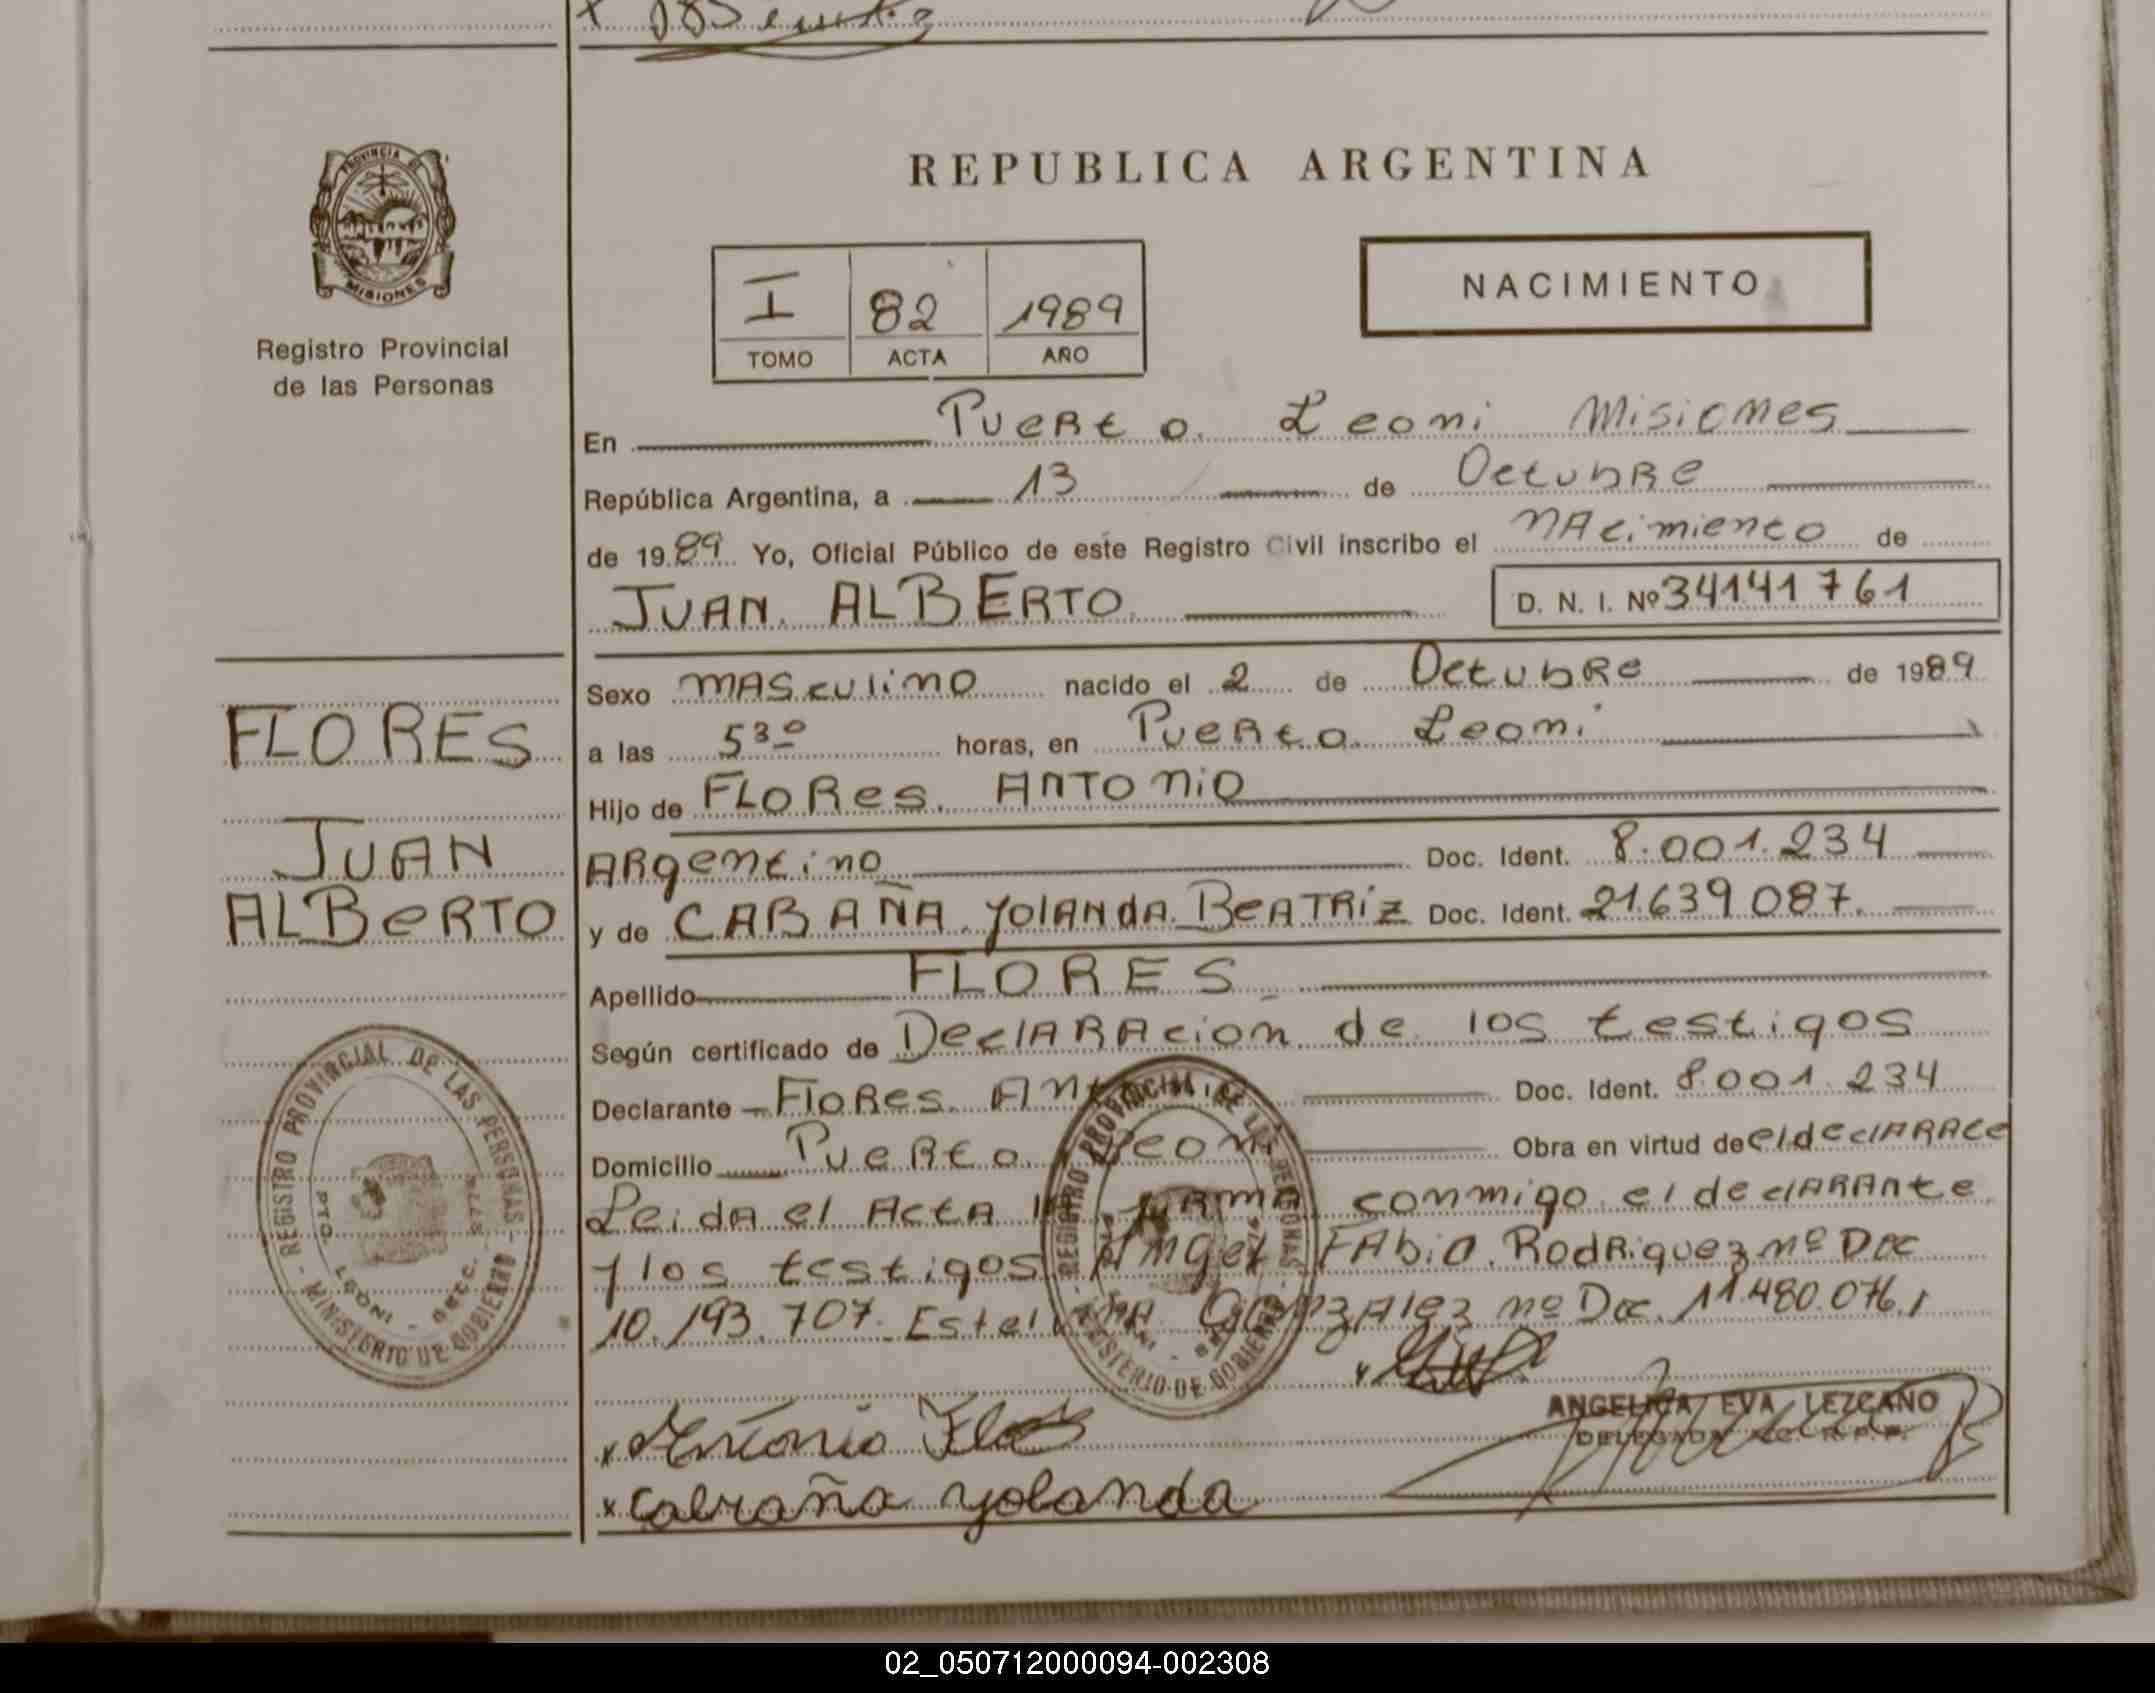 REPUBLICA ARGENTINA
PROVINCIA DE
MISIONES
Registro Provincial
de las Personas
I 82 1989
TOMO ACTA AÑO
NACIMIENTO
En Puerto Leoni Misiones
República Argentina, a 13 de Octubre
de 1989 Yo, Oficial Público de este Registro Civil inscribo el NAcimiento de
JUAN ALBERTO D. N. I. Nº 34141761
Sexo MAsculino nacido el 2 de Octubre de 1989
a las 5 30 horas, en Puerto Leoni
Hijo de FLORes ANTONiO
ARgentino Doc. Ident. 8.001.234
y de CABAÑA YOLANDA BeATRiz Doc. Ident. 21.639.087.
Apellido FLORES
Según certificado de DeclARAcion de los testigos
Declarante FloRes Doc. Ident. 8.001.234
Domicilio Puerto Leoni Obra en virtud de el declARAcc
Leida el ActA conmigo el declARAnte
y los testigos Angel FAbiO RodRiguez nº Doc
10.193.707. GonzAlez nº Doc. 11.480.076,
ANGELICA EVA LEZCANO
DELEGADA
x Antonio
x Cabraña yolanda
FLORES
JUAN
ALBeRTO
REGISTRO PROVINCIAL DE LAS PERSONAS
PTO. LEONI - SECC.
MINISTERIO DE GOBIERNO
02_050712000094-002308